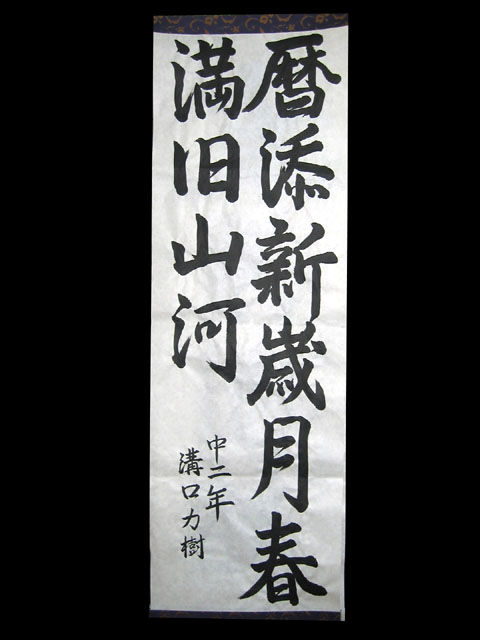 暦添新歳月春
満旧山河
中二年
溝口力樹